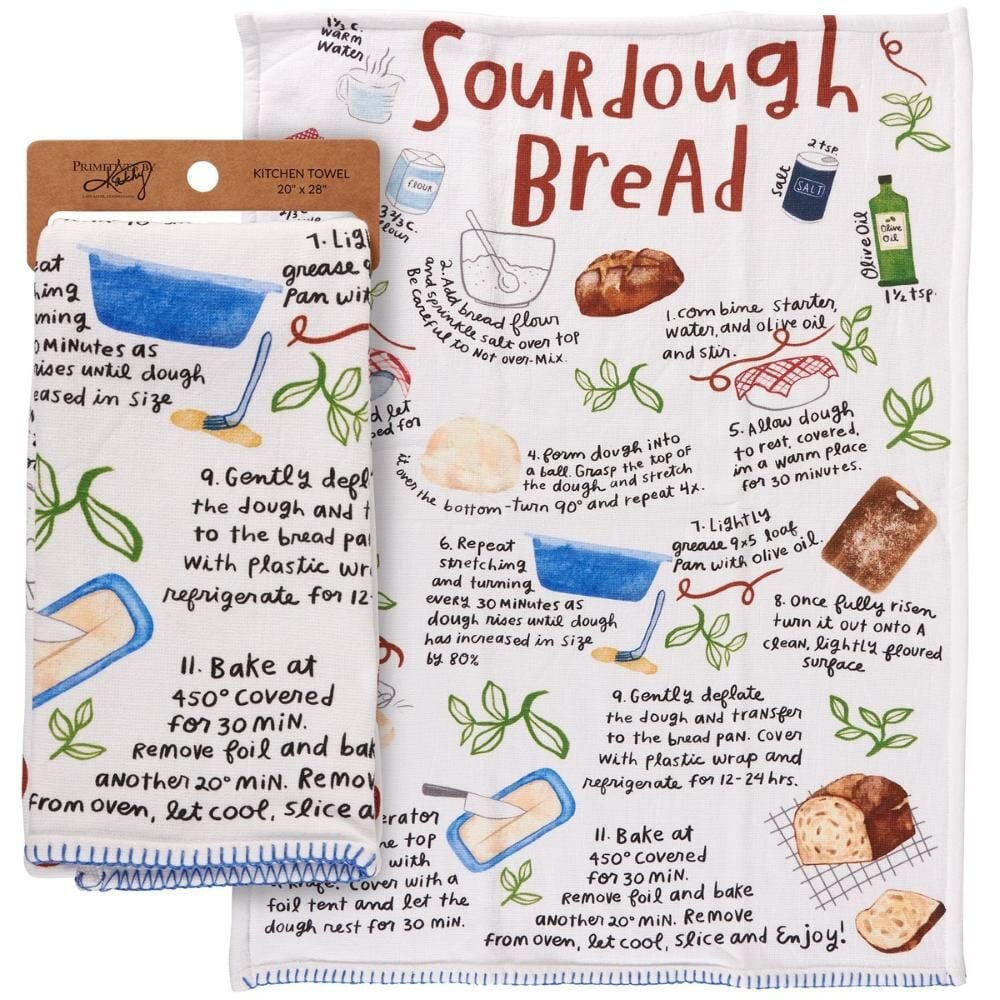 1⅓ C.
warm
water
Sourdough
Bread
FLOUR
3⅔ C.
flour
2 tsp.
salt
SALT
Olive Oil
Olive
Oil
1½ tsp.
1. Combine starter,
water, and olive oil
and stir.
2. Add bread flour
and sprinkle salt over top
Be careful to not over-mix.
d let
ed for
4. form dough into
a ball. Grasp the top of
the dough and stretch
it over the bottom-turn 90° and repeat 4x.
5. Allow dough
to rest, covered,
in a warm place
for 30 minutes.
6. Repeat
stretching
and turning
every 30 minutes as
dough rises until dough
has increased in size
by 80%
7. Lightly
grease 9x5 loaf
pan with olive oil.
8. Once fully risen
turn it out onto a
clean, lightly floured
surface
9. Gently deflate
the dough and transfer
to the bread pan. Cover
with plastic wrap and
refrigerate for 12-24 hrs.
erator
e top
with
a knife. Cover with a
foil tent and let the
dough rest for 30 min.
11. Bake at
450° covered
for 30 min.
Remove foil and bake
another 20° min. Remove
from oven, let cool, slice and Enjoy!
PRIMITIVES BY
Kathy
KITCHEN TOWEL
20" x 28"
eat
hing
ning
0 minutes as
rises until dough
eased in size
7. Lig
grease 9
pan wit
9. Gently defl
the dough and t
to the bread pa
with plastic wr
refrigerate for 12-
11. Bake at
450° covered
for 30 min.
Remove foil and bak
another 20° min. Remov
from oven, let cool, slice a